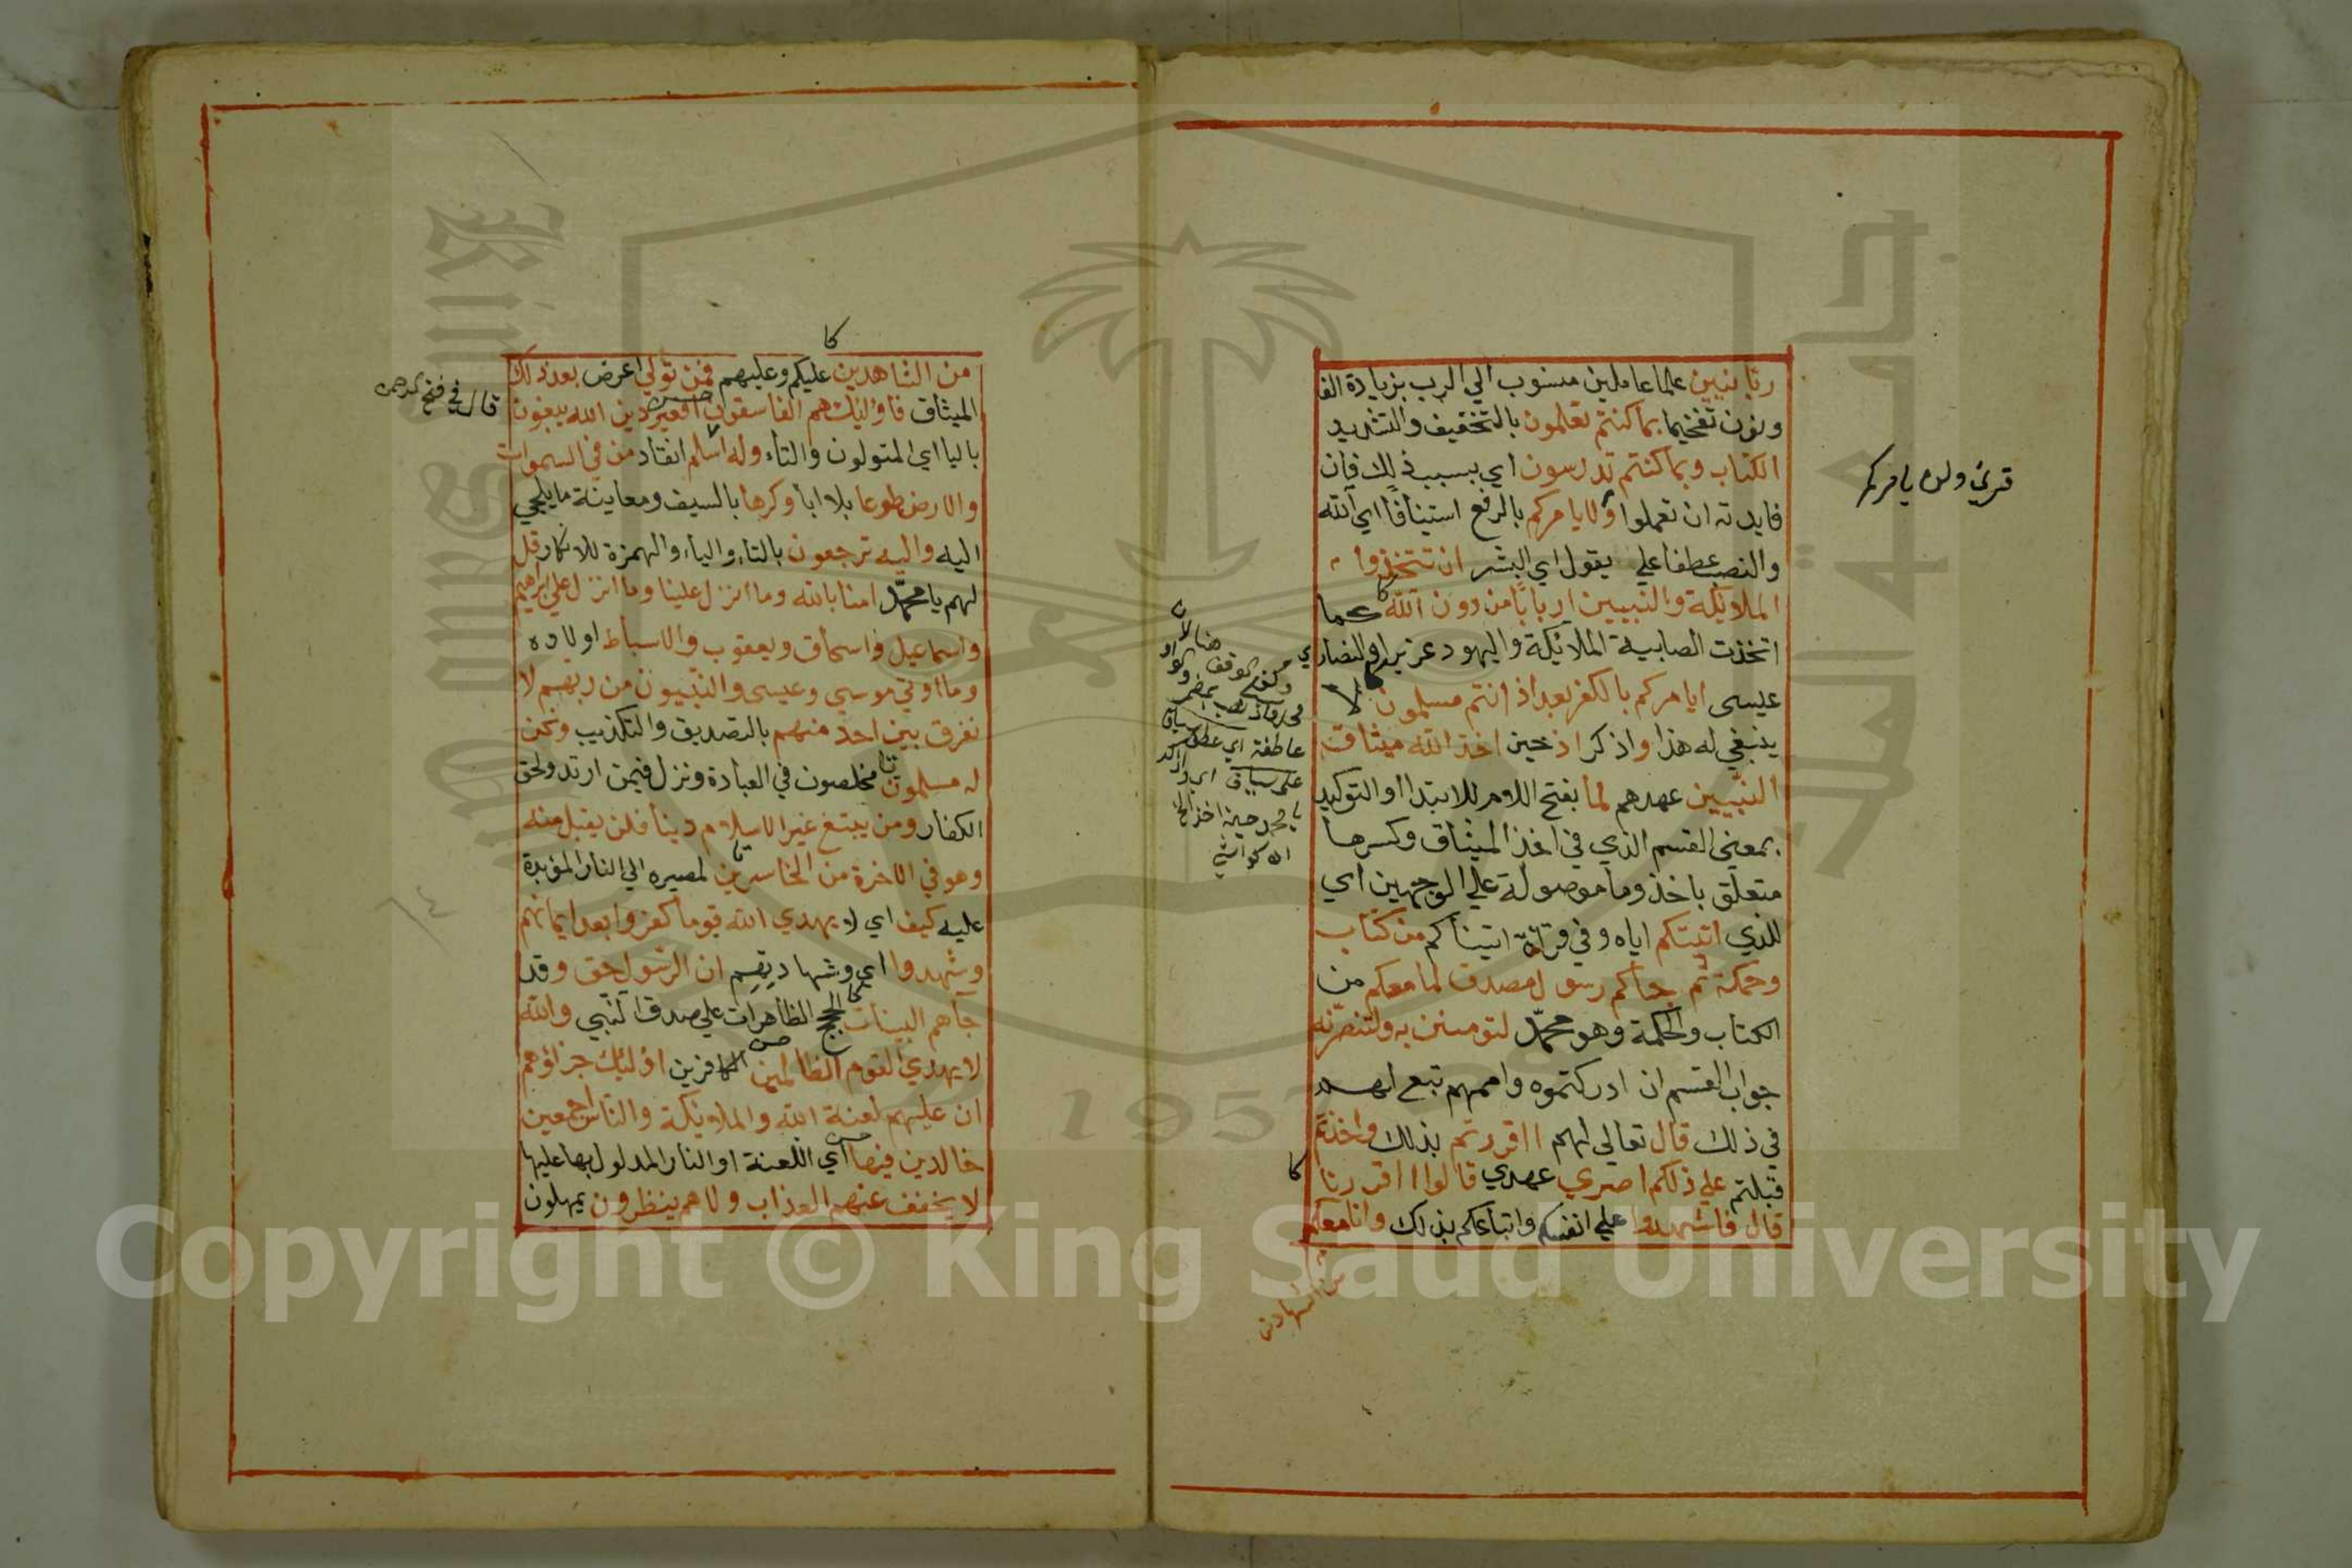 ربانيين علما عاملين منسوب الي الرب بزيادة الف
ونون تفخيما بما كنتم تعلمون بالتخفيف والتشديد
الكتاب وبما كنتم تدرسون اي بسبب ذلك فان
فايدته ان تعملوا ولا يامركم بالرفع استينافا اي الله
والنصب عطفا علي يقول اي البشر ان تتخذوا
الملايكة والنبيين اربابا من دون الله كما
اتخذت الصابية الملائكة واليهود عزيرا والنصاري
عيسى ايامركم بالكفر بعد اذ انتم مسلمون لا
ينبغي له هذا واذكر اذ حين اخذ الله ميثاق
النبيين عهدهم لما بفتح اللام للابتدا او التوكيد
بمعني القسم الذي في اخذ الميثاق وكسرها
متعلق باخذ وما موصولة علي الوجهين اي
للذي اتيتكم اياه وفي قراة اتيناكم من كتاب
وحكمة ثم جاكم رسول مصدق لما معكم من
الكتاب والحكمة وهو محمد لتومنن به ولتنصرنه
جواب القسم ان ادركتموه واممهم تبع لهم
في ذلك قال تعالي لهم ااقررتم بذلك واخذتم
قبلتم علي ذلكم اصري عهدي قالوا اقررنا
قال فاشهدوا علي انفسكم واتباعكم بذلك وانا معكم
من الشاهدين
قرئ ولن يامركم
من الشاهدين عليكم وعليهم فمن تولي اعرض بعد ذلك
الميثاق فاوليك هم الفاسقون افغير دين الله يبغون
باليا اي المتولون والتاء وله اسلم انقاد من في السموات
والارض طوعا بلا ابا وكرها بالسيف ومعاينة ما يلجي
اليه واليه ترجعون بالتاء والياء والهمزة للانكار قل
لهم يا محمد امنا بالله وما انزل علينا وما انزل علي ابرهيم
واسماعيل واسحاق ويعقوب والاسباط اولاده
وما اوتي موسي وعيسى والنبيون من ربهم لا
نفرق بين احد منهم بالتصديق والتكذيب ونحن
له مسلمون مخلصون في العبادة ونزل فيمن ارتد ولحق
الكفار ومن يبتغ غير الاسلام دينا فلن يقبل منه
وهو في الاخرة من الخاسرين لمصيره الي النار المؤبدة
عليه كيف اي لا يهدي الله قوما كفروا بعد ايمانهم
وشهدوا اي وشهادتهم ان الرسول حق وقد
جآهم البينات الحجج الظاهرات علي صدق النبي والله
لا يهدي القوم الظالمين الكافرين اوليك جزاؤهم
ان عليهم لعنة الله والملائكة والناس اجمعين
خالدين فيها اي اللعنة او النار المدلول بها عليها
لا يخفف عنهم العذاب ولا هم ينظرون يمهلون
قال في فتح الرحمن
Copyright © King Saud University
1957